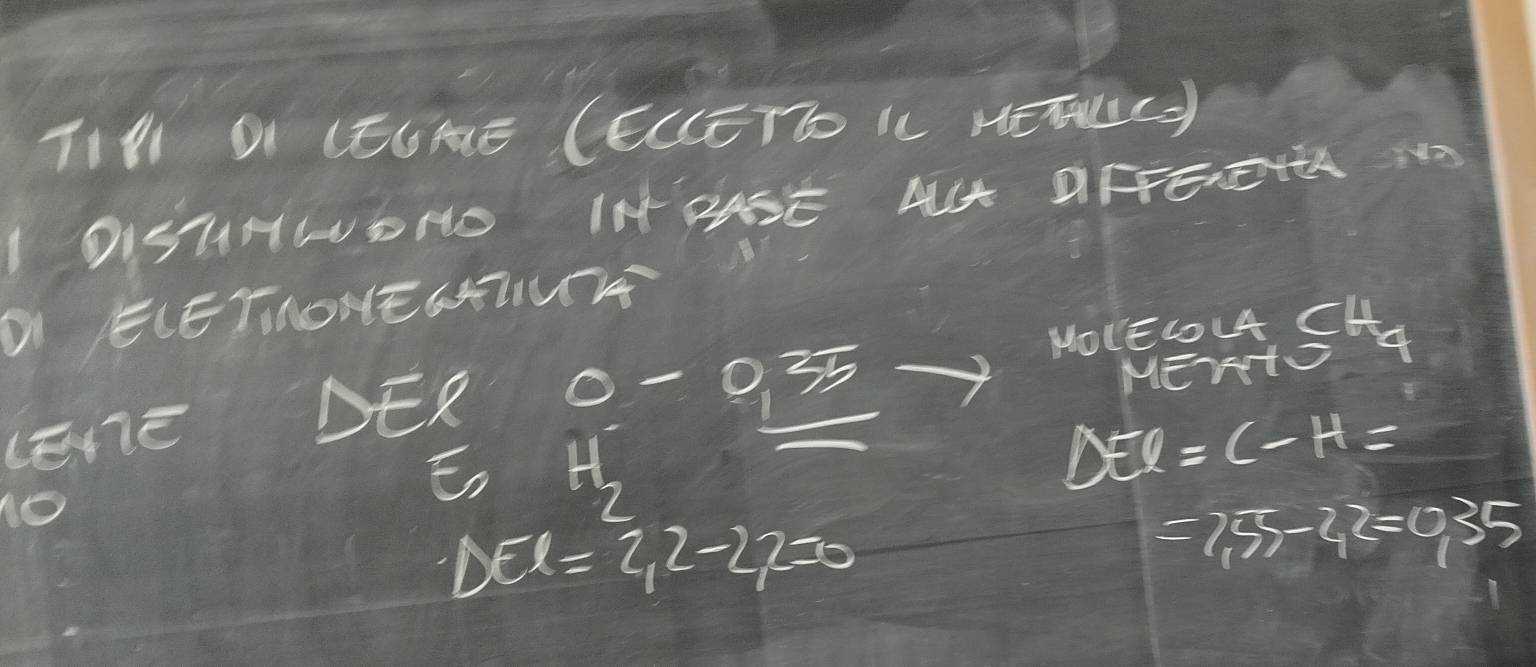 TIPI DI LEGAME (ECCETTO IL METALLICO)
I DISTINGUONO IN BASE ALLA DIFFERENZA
DI ELETTRONEGATIVITÀ
MOLECOLA CH4
METANO
LENTE DEl 0 - 0,35 →
Es H2
DEl = C - H =
DEl = 2,2 - 2,2 = 0
= 2,55 - 2,2 = 0,35